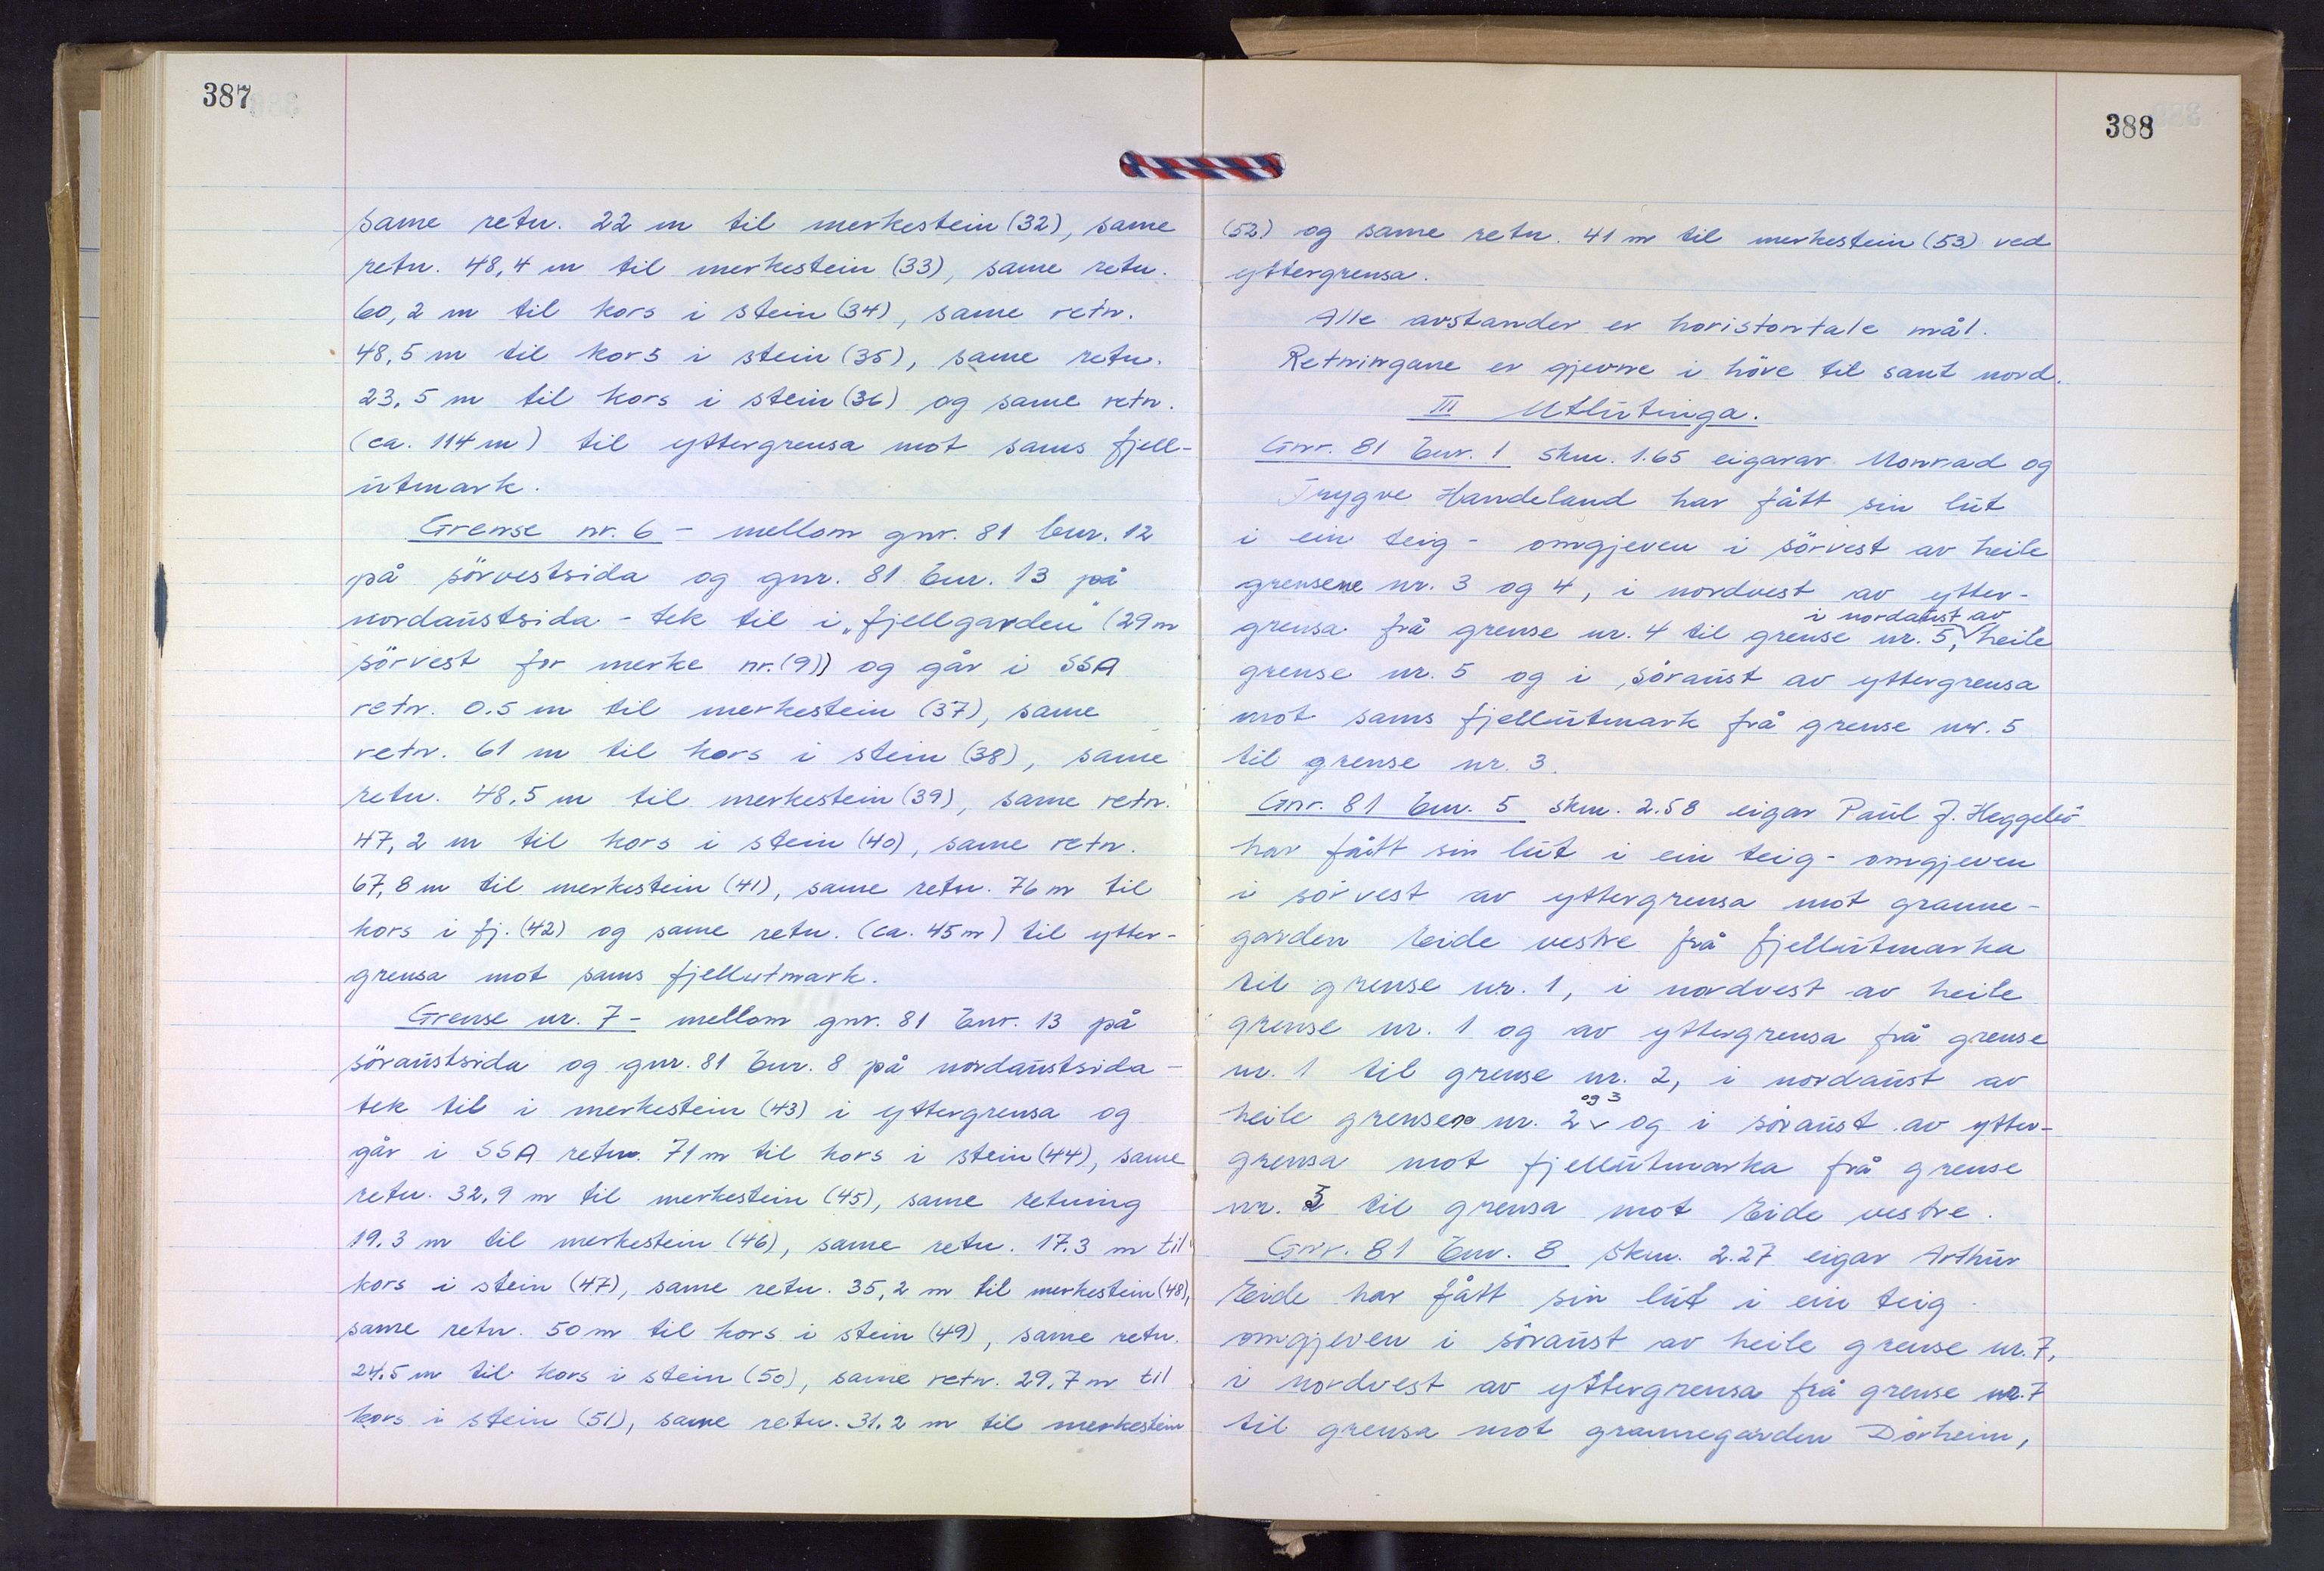 387
same retn. 22 m til merkestein (32), same
retn. 48,4 m til merkestein (33), same retn.
60,2 m til kors i stein (34), same retn.
48,5 m til kors i stein (35), same retn.
23,5 m til kors i stein (36) og same retn.
(ca. 114 m) til yttergrensa mot sams fjell-
utmark.
Grense nr. 6 - mellom gnr. 81 bnr. 12
på sörvestsida og gnr. 81 bnr. 13 på
nordaustsida - tek til i „fjellgarden" (29 m
sörvest for merke nr. (9)) og går i SSA
retn. 0.5 m til merkestein (37), same
retn. 61 m til kors i stein (38), same
retn. 48,5 m til merkestein (39), same retn.
47,2 m til kors i stein (40), same retn.
67,8 m til merkestein (41), same retn. 76 m til
kors i fj. (42) og same retn. (ca. 45 m) til ytter-
grensa mot sams fjellutmark.
Grense nr. 7 - mellom gnr. 81 bnr. 13 på
söraustsida og gnr. 81 bnr. 8 på nordaustsida -
tek til i merkestein (43) i yttergrensa og
går i SSA retn. 71 m til kors i stein (44), same
retn. 32,9 m til merkestein (45), same retning
19.3 m til merkestein (46), same retn. 17.3 m til
kors i stein (47), same retn. 35,2 m til merkestein (48),
same retn. 50 m til kors i stein (49), same retn.
24,5 m til kors i stein (50), same retn. 29,7 m til
kors i stein (51), same retn. 31.2 m til merkestein
388
(52) og same retn. 41 m til merkestein (53) ved
yttergrensa.
Alle avstander er horistontale mål.
Retningane er gjevne i höve til sant nord.
III Utlutinga.
Gnr. 81 bnr. 1 skm. 1.65 eigarar Monrad og
Trygve Handeland har fått sin lut
i ein teig - omgjeven i sörvest av heile
grensene nr. 3 og 4, i nordvest av ytter-
i nordaust av
grensa frå grense nr. 4 til grense nr. 5, heile
grense nr. 5 og i söraust av yttergrensa
mot sams fjellutmark frå grense nr. 5
til grense nr. 3.
Gnr. 81 bnr. 5 skm. 2.58 eigar Paul J. Heggelö
har fått sin lut i ein teig - omgjeven
i sörvest av yttergrensa mot granne-
garden Eide vestre frå fjellutmarka
til grense nr. 1, i nordvest av heile
grense nr. 1 og av yttergrensa frå grense
nr. 1 til grense nr. 2, i nordaust av
og 3
heile grensene nr. 2 og i söraust av ytter-
grensa mot fjellutmarka frå grense
nr. 3 til grensa mot Eide vestre.
Gnr. 81 bnr. 8 skm. 2.27 eigar Arthur
Eide har fått sin lut i ein teig
omgjeven i söraust av heile grense nr. 7,
i nordvest av yttergrensa frå grense nr. 7
til grensa mot grannegarden Dörheim,